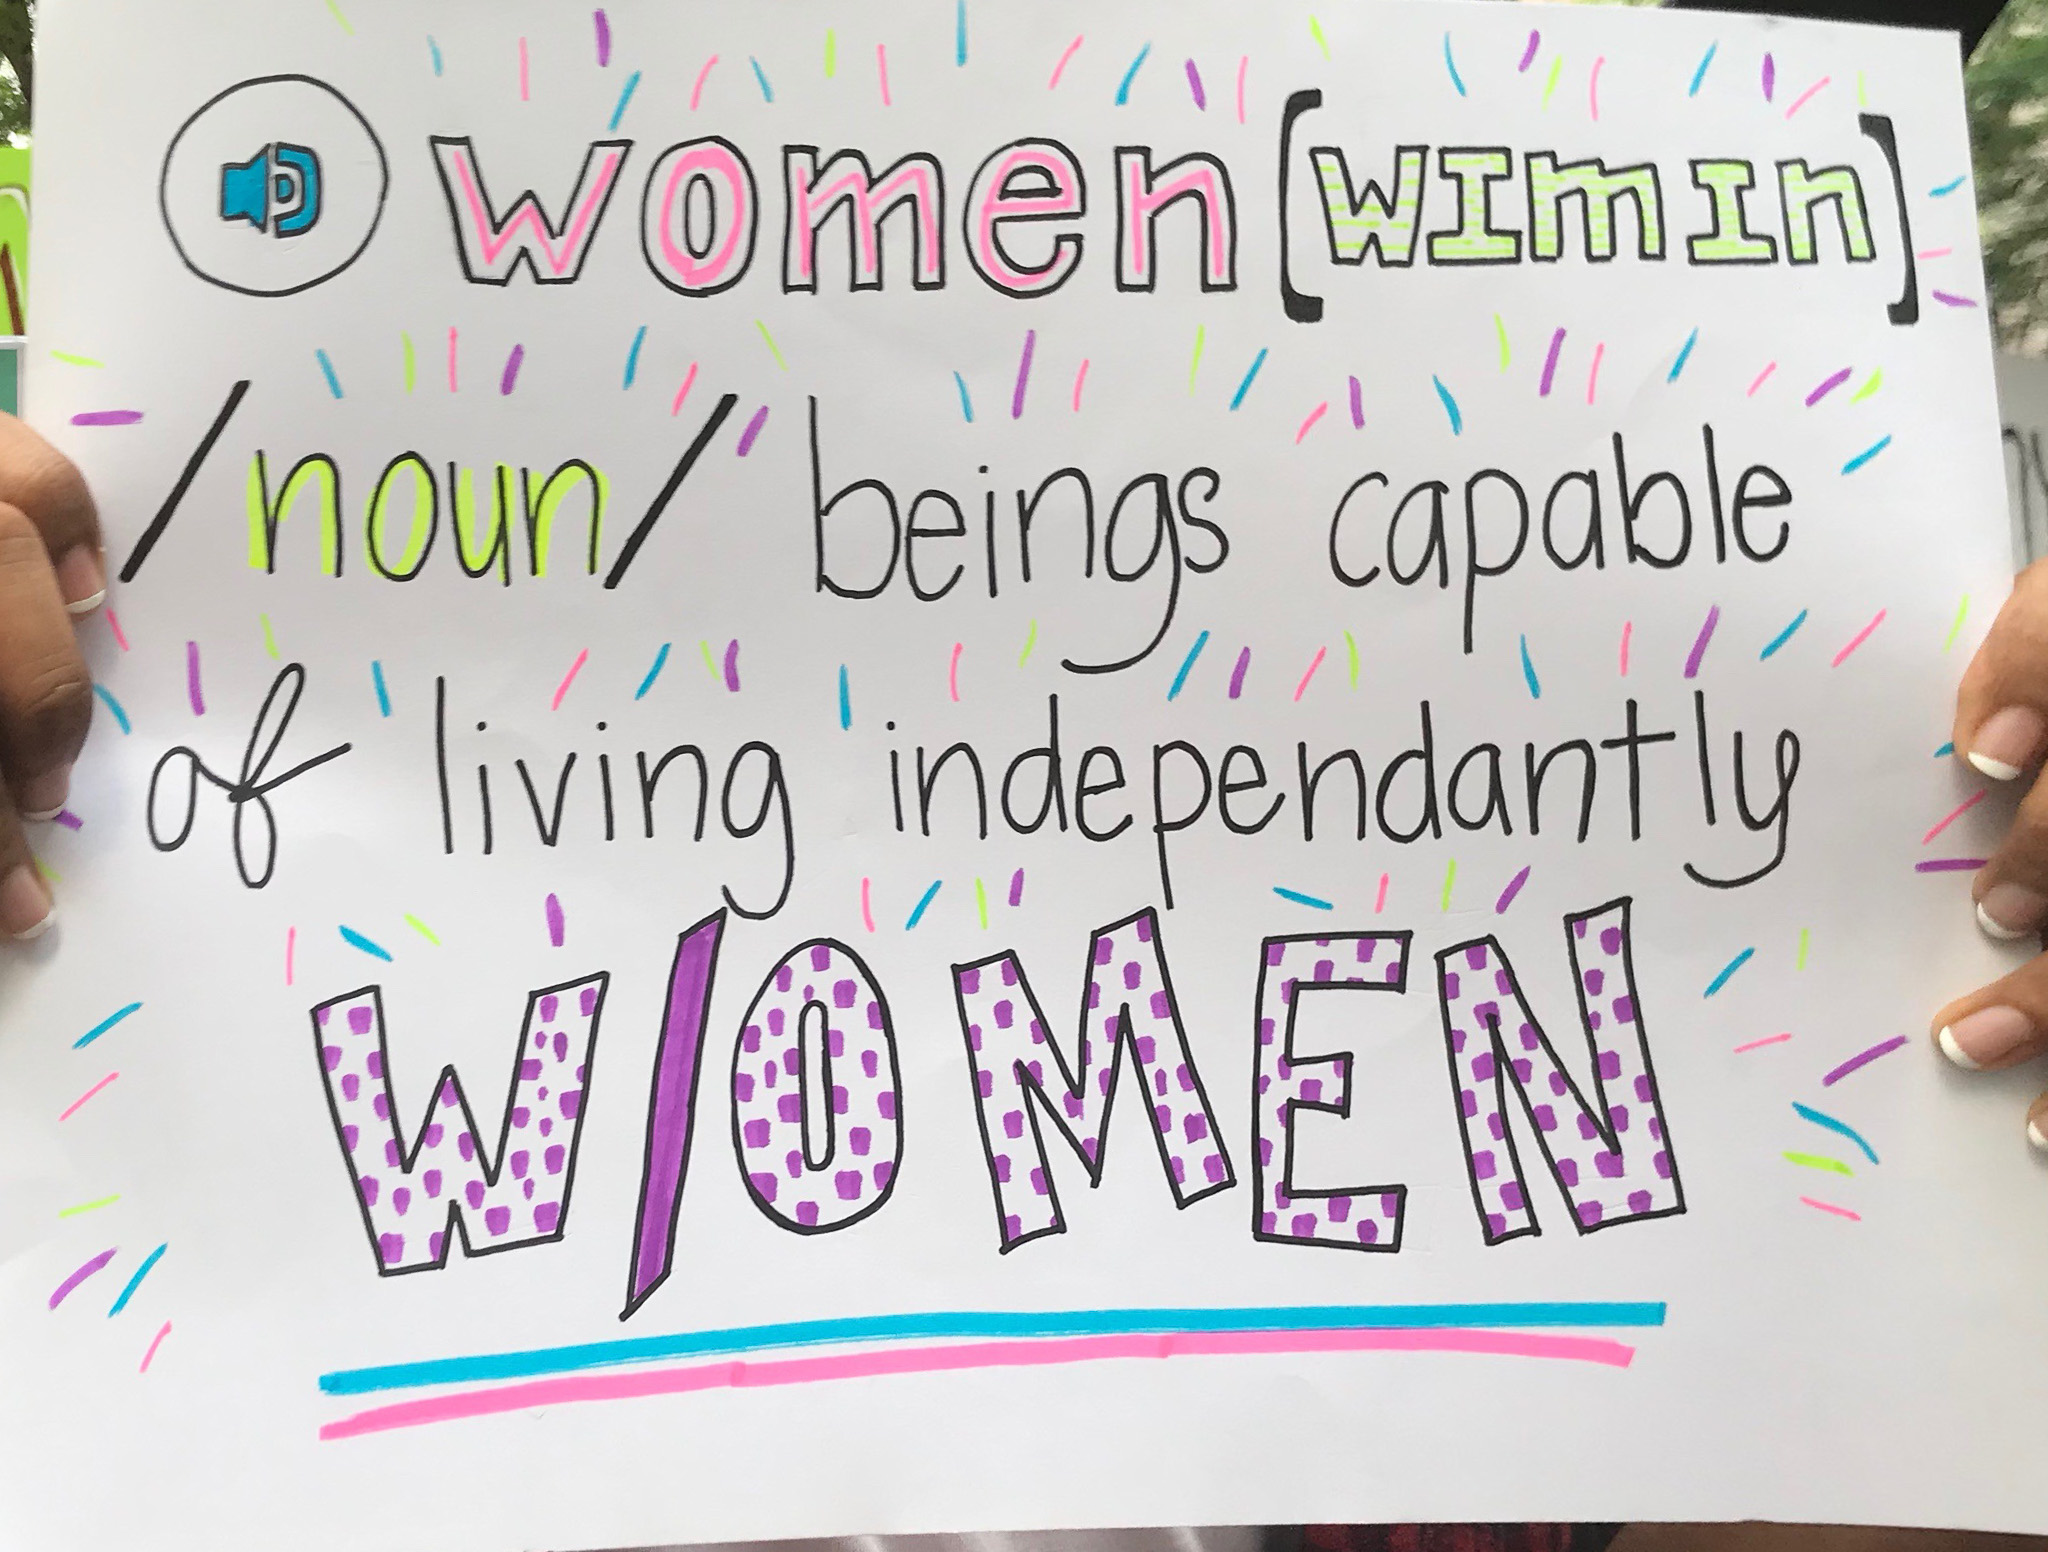 women [wimin]
/noun/ beings capable
of living independantly
W/OMEN